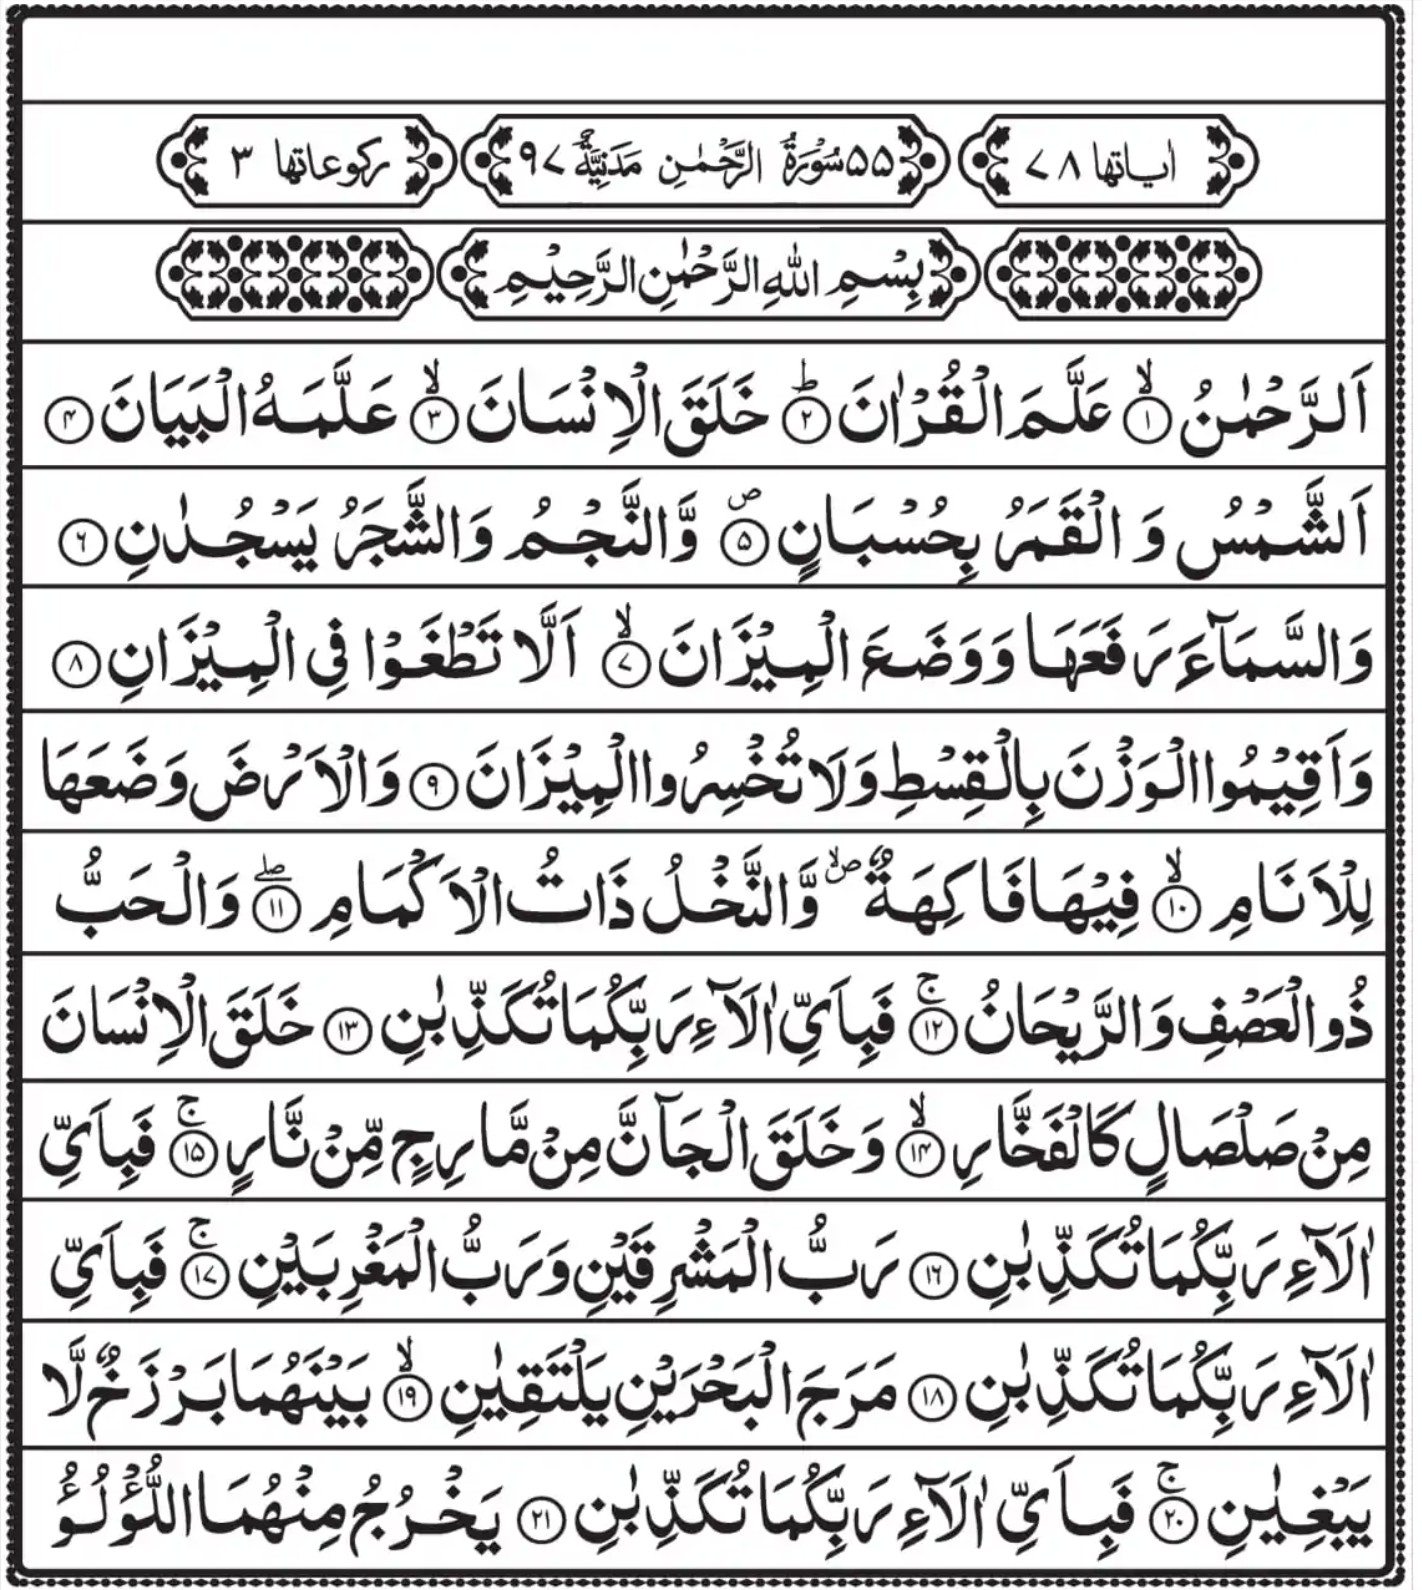 اٰیاتها ۷۸ ۵۵ سُوْرَةُ الرَّحْمٰنِ مَدَنِیَّةٌ ۹۷ رکوعاتها ۳
بِسْمِ اللّٰهِ الرَّحْمٰنِ الرَّحِیْمِ
اَلرَّحْمٰنُ ۙ﴿۱﴾ عَلَّمَ الْقُرْاٰنَ ؕ﴿۲﴾ خَلَقَ الْاِنْسَانَ ۙ﴿۳﴾ عَلَّمَهُ الْبَیَانَ ﴿۴﴾
اَلشَّمْسُ وَ الْقَمَرُ بِحُسْبَانٍ ۪﴿۵﴾ وَّ النَّجْمُ وَ الشَّجَرُ یَسْجُدٰنِ ﴿۶﴾
وَ السَّمَآءَ رَفَعَهَا وَ وَضَعَ الْمِیْزَانَ ۙ﴿۷﴾ اَلَّا تَطْغَوْا فِی الْمِیْزَانِ ﴿۸﴾
وَ اَقِیْمُوا الْوَزْنَ بِالْقِسْطِ وَ لَا تُخْسِرُوا الْمِیْزَانَ ﴿۹﴾ وَ الْاَرْضَ وَضَعَهَا
لِلْاَنَامِ ۙ﴿۱۰﴾ فِیْهَا فَاكِهَةٌ ۪ۙ وَّ النَّخْلُ ذَاتُ الْاَكْمَامِ ۖ﴿۱۱﴾ وَ الْحَبُّ
ذُو الْعَصْفِ وَ الرَّیْحَانُ ۚ﴿۱۲﴾ فَبِاَیِّ اٰلَآءِ رَبِّكُمَا تُكَذِّبٰنِ ﴿۱۳﴾ خَلَقَ الْاِنْسَانَ
مِنْ صَلْصَالٍ كَالْفَخَّارِ ۙ﴿۱۴﴾ وَ خَلَقَ الْجَآنَّ مِنْ مَّارِجٍ مِّنْ نَّارٍ ۚ﴿۱۵﴾ فَبِاَیِّ
اٰلَآءِ رَبِّكُمَا تُكَذِّبٰنِ ﴿۱۶﴾ رَبُّ الْمَشْرِقَیْنِ وَ رَبُّ الْمَغْرِبَیْنِ ۚ﴿۱۷﴾ فَبِاَیِّ
اٰلَآءِ رَبِّكُمَا تُكَذِّبٰنِ ﴿۱۸﴾ مَرَجَ الْبَحْرَیْنِ یَلْتَقِیٰنِ ۙ﴿۱۹﴾ بَیْنَهُمَا بَرْزَخٌ لَّا
یَبْغِیٰنِ ۚ﴿۲۰﴾ فَبِاَیِّ اٰلَآءِ رَبِّكُمَا تُكَذِّبٰنِ ﴿۲۱﴾ یَخْرُجُ مِنْهُمَا اللُّؤْلُؤُ